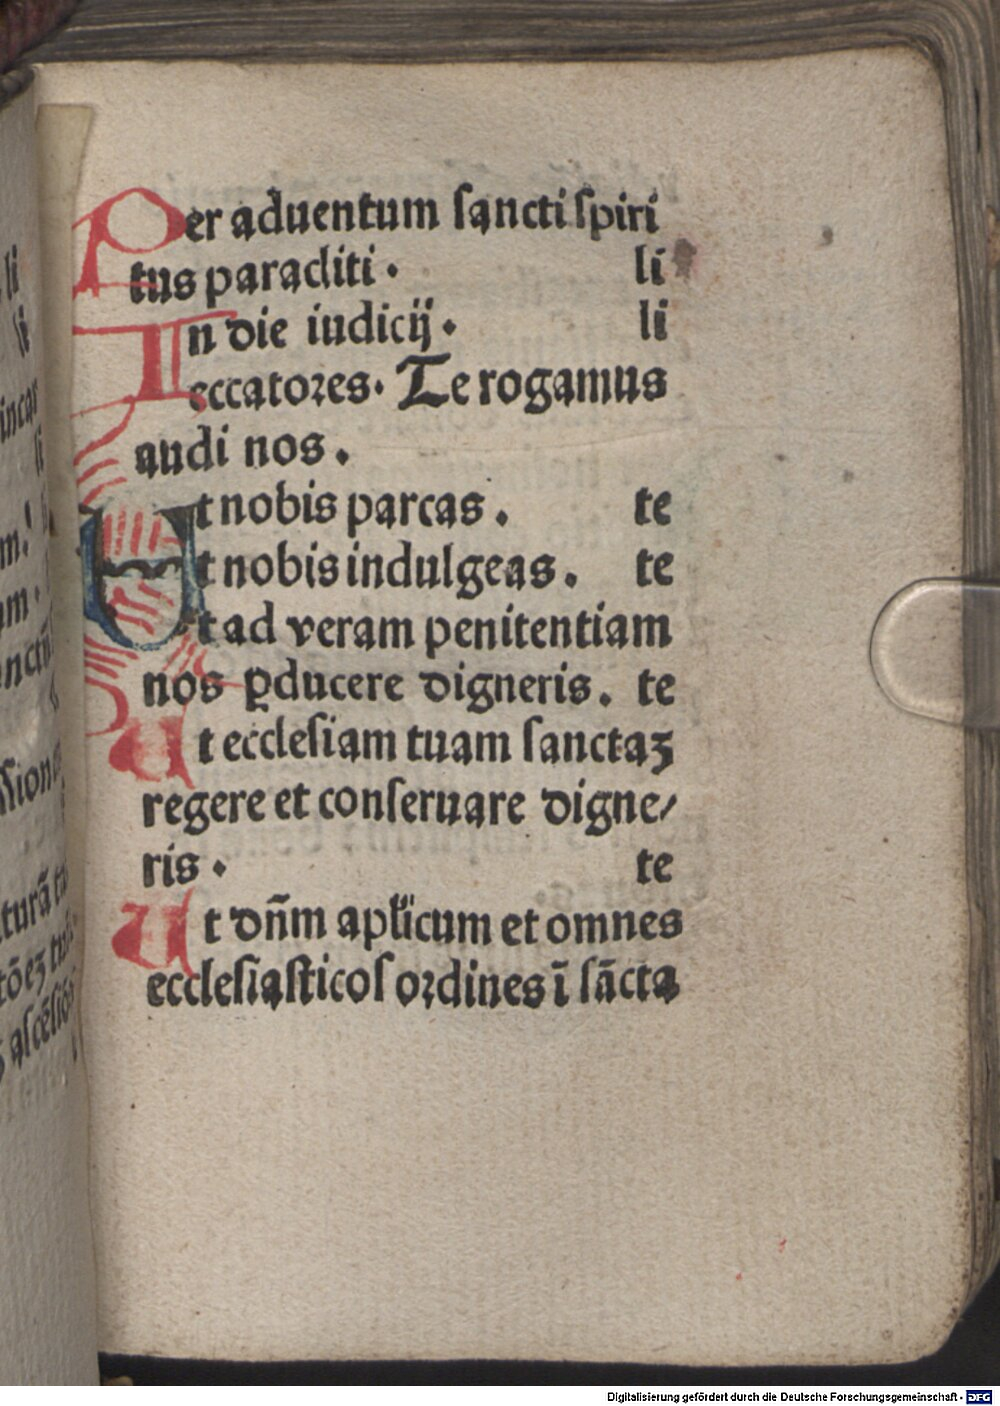 Per aduentum sancti spiri
tus paracliti . li
In die iudicij . li
Peccatores. Te rogamus
audi nos .
Ut nobis parcas . te
Ut nobis indulgeas . te
Ut ad veram penitentiam
nos ꝑducere digneris . te
Ut ecclesiam tuam sanctaꝫ
regere et conseruare digne/
ris . te
Ut dn̄m apl̓icum et omnes
ecclesiasticos ordines ī sācta
Digitalisierung gefördert durch die Deutsche Forschungsgemeinschaft - DFG